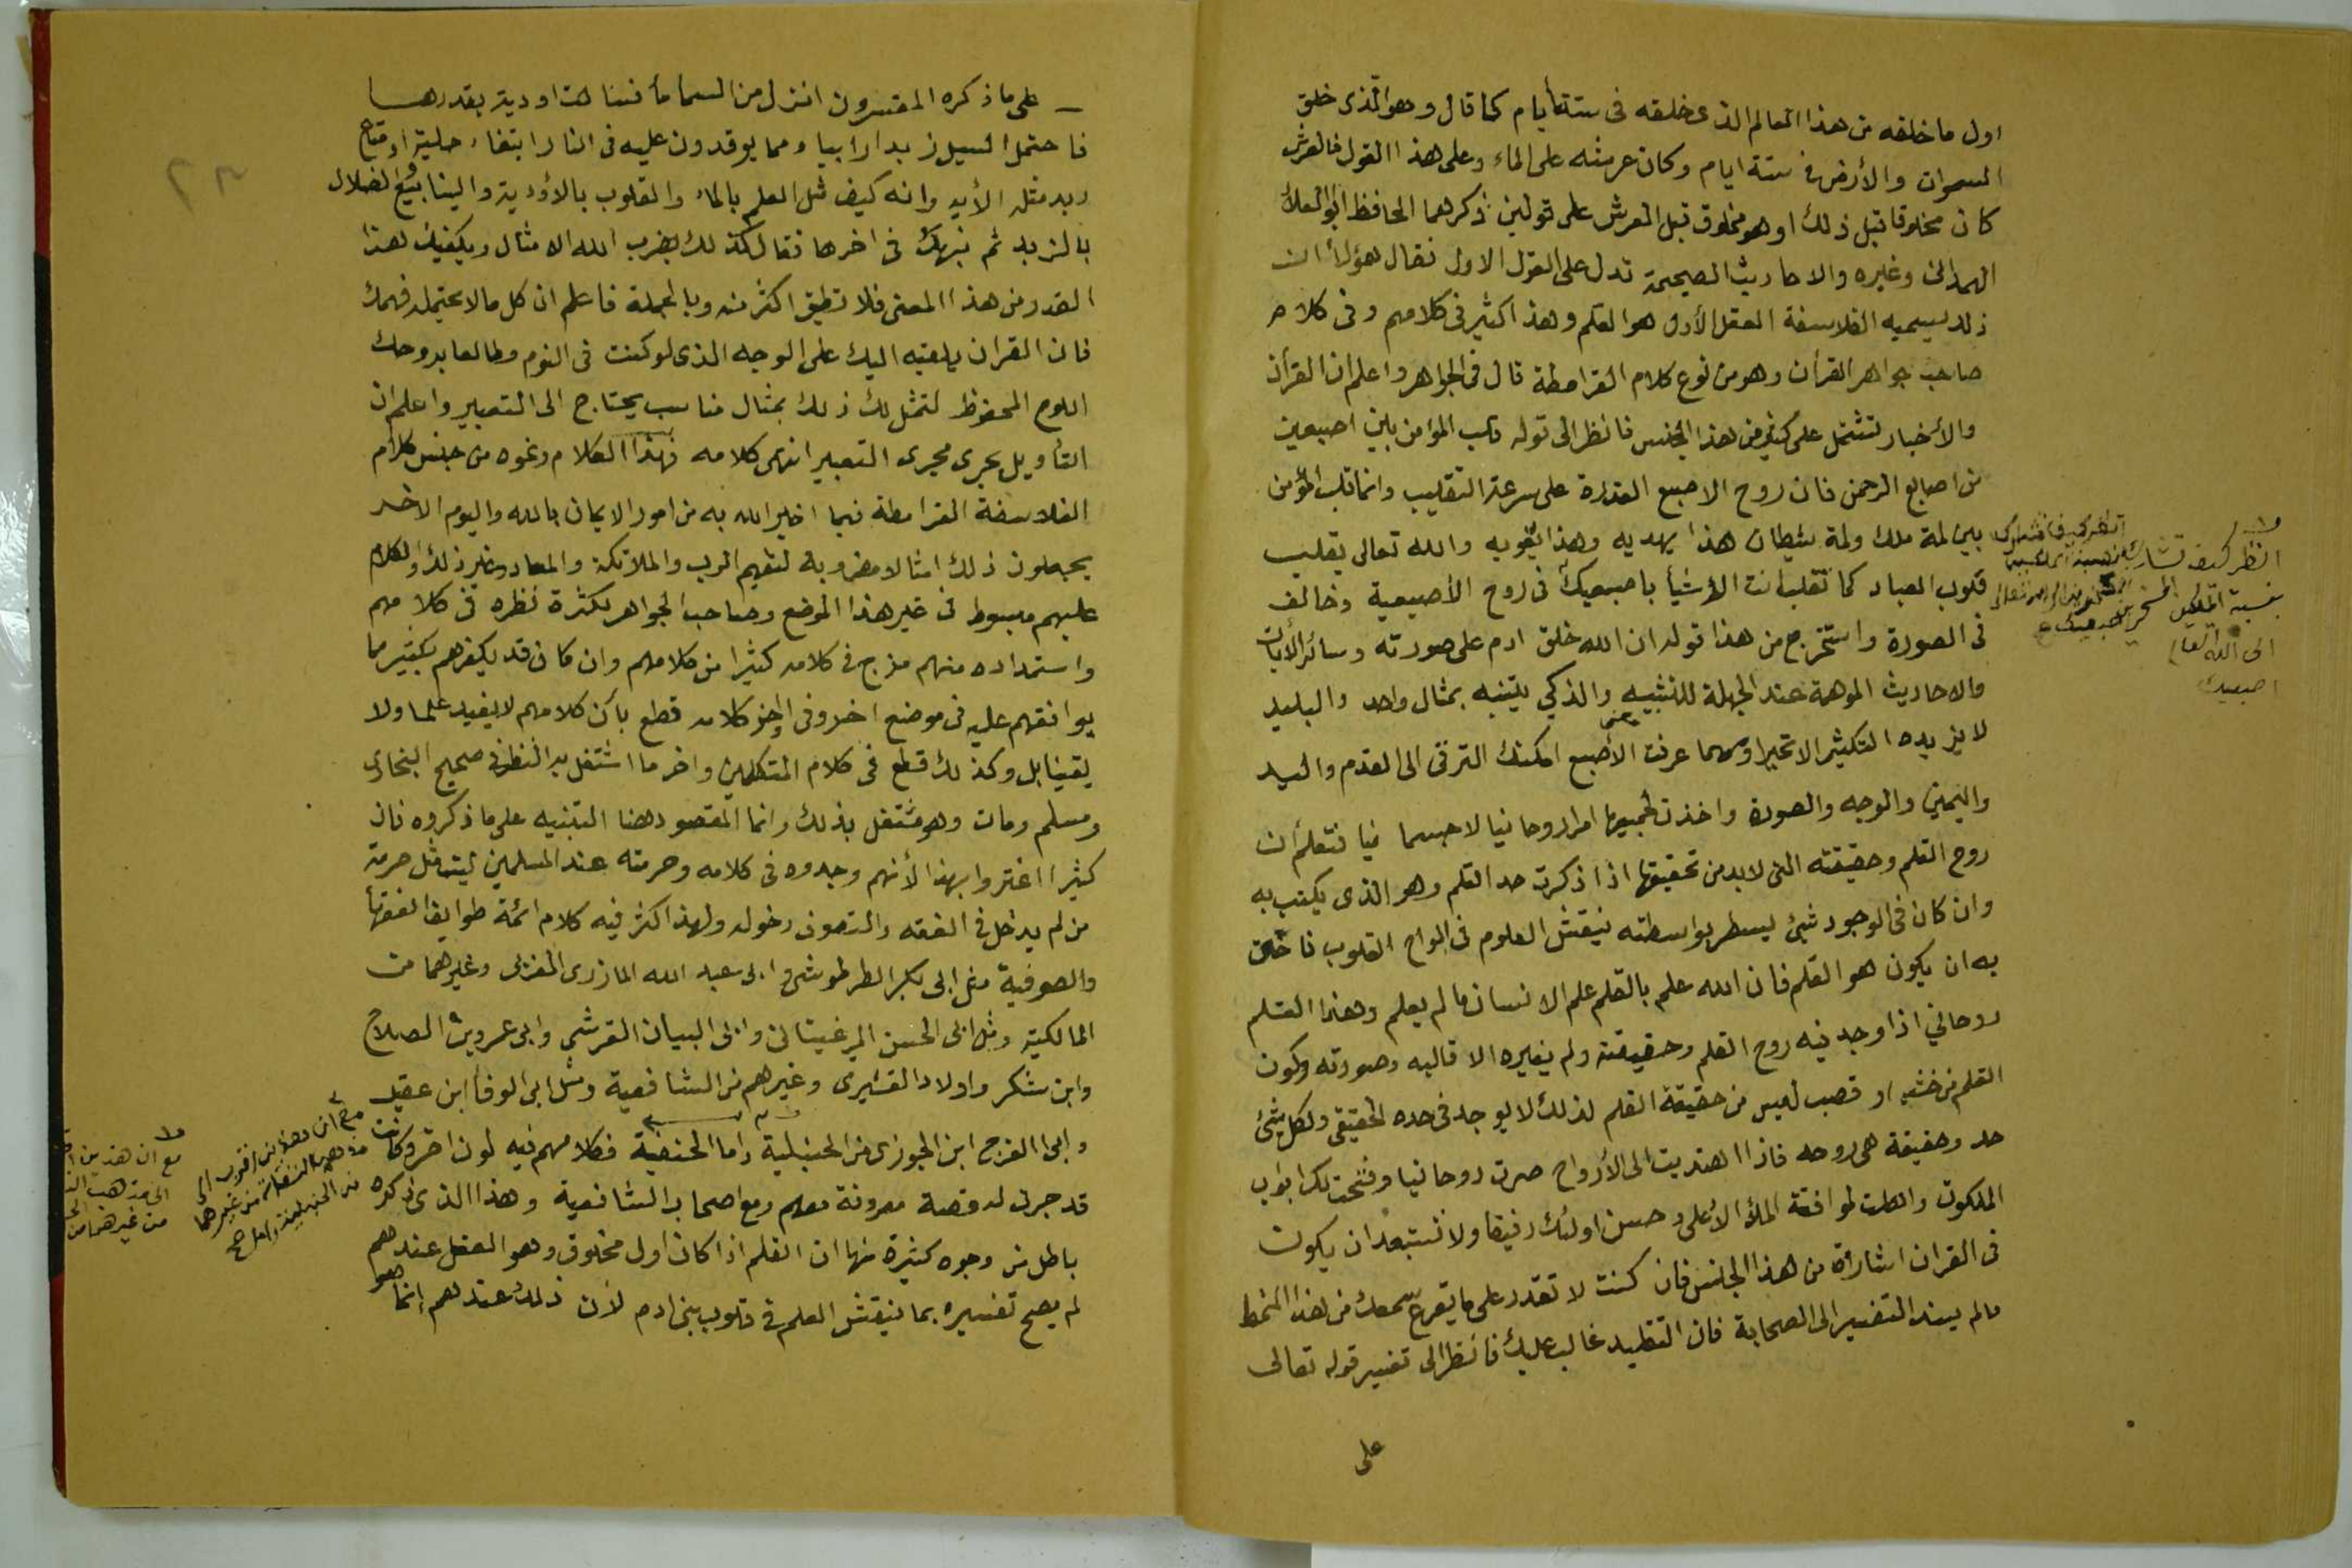 اول ما خلقه من هذا العالم الذى خلقه فى ستة أيام كما قال وهو الذى خلق
السموات والأرض فى ستة ايام وكان عرشه على الماء وعلى هذا القول فالعرش
كان مخلوقا قبل ذلك او هو مخلوق قبل العرش على قولين ذكرهما الحافظ ابو العلاء
الهمدانى وغيره والاحاديث الصحيحة تدل على القول الاول فقال هؤلاء ان
ذلك يسميه الفلاسفة العقل الأول هو القلم وهذا كثير فى كلامهم وفى كلام
صاحب جواهر القرآن وهو من نوع كلام القرامطة قال فى الجواهر واعلم ان القرآن
والأخبار تشتمل على كثير من هذا الجنس فانظر الى قوله قلب المؤمن بين اصبعين
من اصابع الرحمن فان روح الاصبع القدرة على سرعة التقليب وانما قلب المؤمن
بين لمة ملك ولمة شيطان هذا يهديه وهذا يغويه والله تعالى يقلب
قلوب العباد كما تقلب انت الأشيأ باصبعيك فى روح الأصبعية وخالف
فى الصورة واستخرج من هذا قوله ان الله خلق ادم على صورته وسائر الأيات
والاحاديث الموهمة عند الجهلة للتشبيه والذكي يتنبه بمثال واحد والبليد
لا يزيده التكثير الا تحيرا ومهما عرفت معنى الأصبع امكنك الترقى الى القدم واليد
واليمين والوجه والصورة واخذت لجميعها امرا روحانيا لا جسما نيا فتعلم أن
روح القلم وحقيقته التى لابد من تحقيقها اذا ذكرت حد القلم وهو الذى يكتب به
وان كان فى الوجود شئ يسطر بواسطته نيقش العلوم فى الواح القلوب فاخلق
به ان يكون هو القلم فان الله علم بالقلم علم الانسان ما لم يعلم وهذا القلم
روحاني اذا وجد فيه روح القلم وحقيقته ولم يغيره الا قالبه وصورته وكون
القلم من خشب او قصب ليس من حقيقة القلم لذلك لا يوجد فى حده الحقيقى ولكل شئ
حد وحقيقة هى روحه فاذا اهتديت الى الأرواح صرت روحانيا وفتحت لك ابواب
الملكوت واهلت لموافقة الملأ الأعلى وحسن اولئك رفيقا ولا تستبعد ان يكون
فى القران اشارة من هذا الجنس فان كنت لا تقدر على ما يقرع سمعك من هذا النمط
مالم يسند التفسير الى الصحابة فان التقليد غالب عليك فانظر الى تفسير قوله تعالى
على
انظر كيف تشارك
نسبة
الى الله تعالى
اصبعيك
على ما ذكره المفسرون انزل من السما مأ فسالت اودية بقدرها
فاحتمل السيل زبدا رابيا ومما يوقدون عليه فى النار ابتغاء حلية او متاع
زبد مثله الأية وانه كيف مثل العلم بالماء والقلوب بالأودية والينابيع والضلال
بالزبد ثم نبهك فى اخرها فقال كذلك يضرب الله الامثال ويكفيك هذا
القدر من هذا المعنى فلا تطيق اكثر منه وبالجملة فاعلم ان كل مالا يحتمله فهمك
فان القران يلقيه اليك على الوجه الذى لو كنت فى النوم مطالعا بروحك
اللوح المحفوظ لتمثل لك ذلك بمثال مناسب يحتاج الى التعبير واعلم ان
التأويل يجرى مجرى التعبير انتهى كلامه فهذا الكلام ونحوه من جنس كلام
الفلاسفة القرامطة فيما اخبر الله به من امور الايمان بالله واليوم الاخر
يجعلون ذلك امثالا مضروبة لتفهيم الرب والملائكة والمعاد وغير ذلك والكلام
عليهم مبسوط فى غير هذا الموضع وصاحب الجواهر لكثرة نظره فى كلامهم
واستمداده منهم مزج فى كلامه كثيرا من كلامهم وان كان قد يكفرهم بكثير مما
يوافقهم عليه فى موضع اخر وفى اخر كلامه قطع بأن كلامهم لا يفيد علما ولا
يقينا بل وكذلك قطع فى كلام المتكلمين واخر ما اشتغل به النظر فى صحيح البخارى
ومسلم ومات وهو مشتغل بذلك وانما المقصود هنا التنبيه على ما ذكروه فان
كثيرا اغتروا بهذا لأنهم وجدوه فى كلامه وحرمته عند المسلمين ليست مثل حرمة
من لم يدخل فى الفقه والتصوف دخوله ولهذا كثر فيه كلام ائمة طوايف الفقهأ
والصوفية مثل ابى بكر الطرطوشى وابى عبد الله المازرى المغربى وغيرهما من
المالكية ومثل ابى الحسن المرغينانى وابى البيان القرشي وابى عمرو بن الصلاح
وابن شكر واولاد القشيرى وغيرهم من الشافعية ومثل ابى الوفا ابن عقيل
وابى الفرج ابن الجوزى من الحنبلية واما الحنفية فكلامهم فيه لون اخر وكانت
قد جرت له قصة معروفة معهم ومع اصحاب الشافعية وهذا الذى ذكروه
باطل من وجوه كثيرة منها ان القلم اذا كان اول مخلوق وهو العقل عندهم
لم يصح تفسيره بما نيقش العلم فى قلوب بنى ادم لأن ذلك عندهم إنما هو
مع ان هذين اقرب الى
مذهب النفاة من غيرهما
من الحنبلية
مع ان هذين
الى مذهب
من غيرهما من